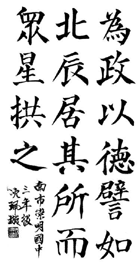 為政以德譬如
北辰居其所而
眾星拱之
南市崇明國中
三年級